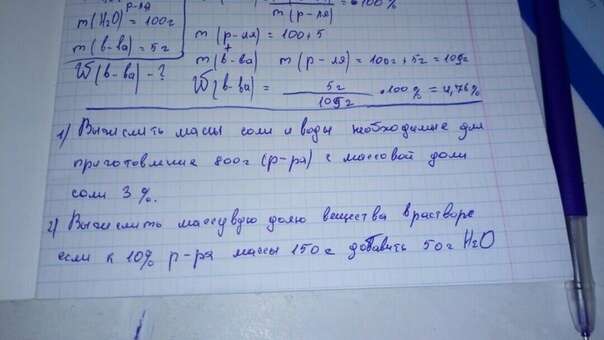 р-ля
m(H₂O) = 100г
m(в-ва) = 5г
W(в-ва) - ?
m(р-ля) 100%
m(р-ля) = 100+5
+
m(в-ва) m(р-ля) = 100г+5г = 105г
W(в-ва) = 5г/105г • 100% = 4,76%
1) Вычислить масы соли и воды необходимые для
приготовление 800г (р-ра) с массовой доли
соли 3%.
2) Вычислить массувую долю вещества в растворе
если к 10% р-ра массы 150г добавить 50г H₂O